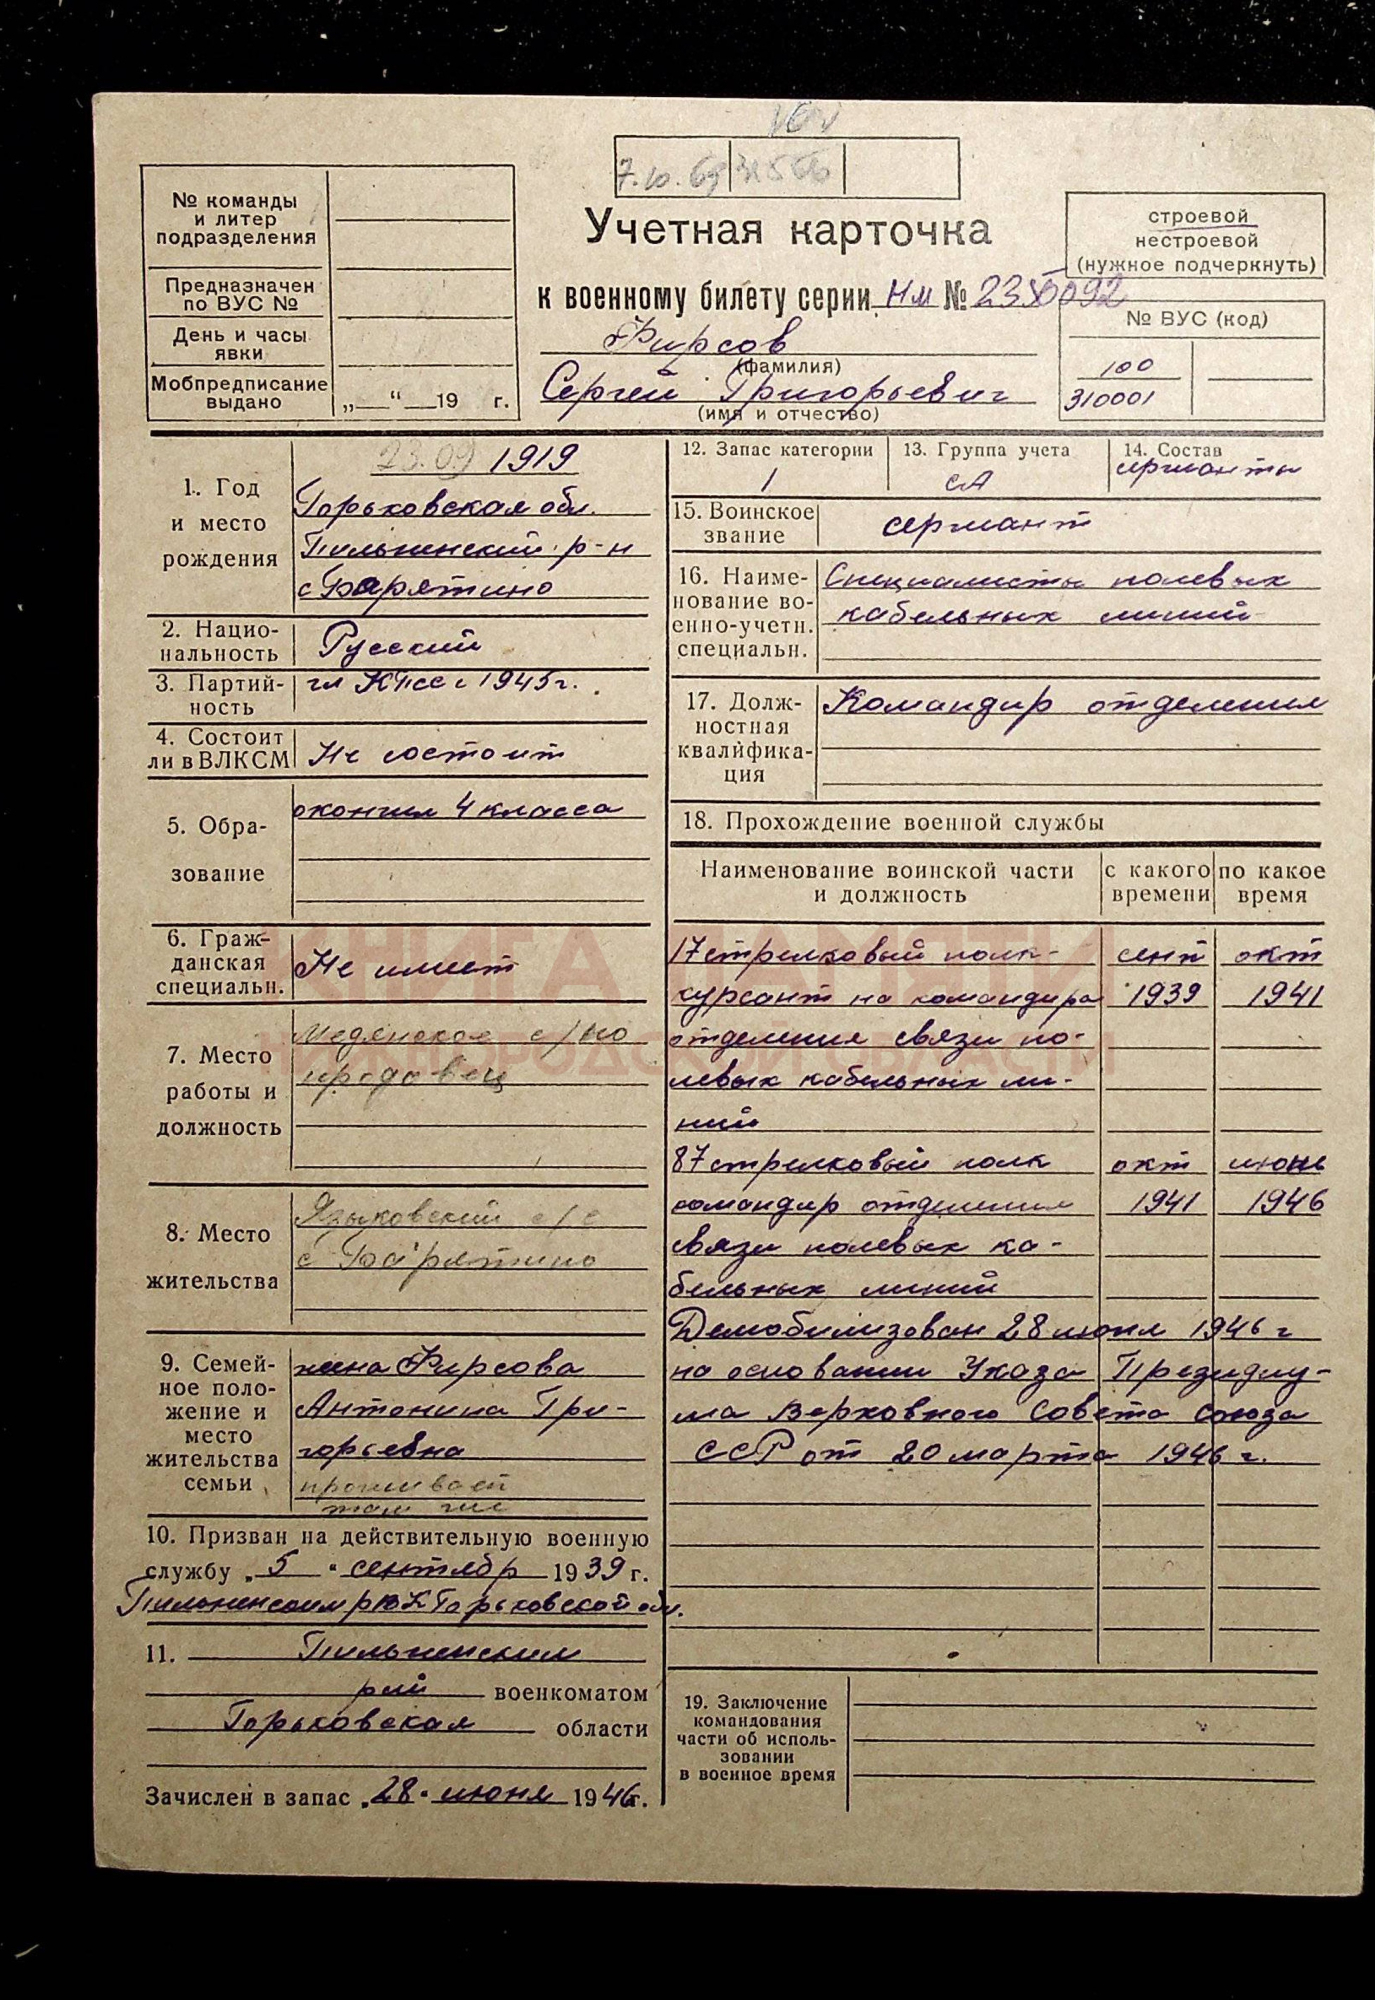 7.10.69
№ команды
и литер
подразделения
Предназначен
по ВУС №
День и часы
явки
Мобпредписание
выдано
„ “ 19 г.
Учетная карточка
к военному билету серии НМ №
Фирсов
(фамилия)
Сергей Григорьевич
(имя и отчество)
строевой
нестроевой
(нужное подчеркнуть)
№ ВУС (код)
100
310001
1. Год
и место
рождения
23.09 1919
Горьковская обл.
Пильненский р-н
с Барятино
2. Нацио-
нальность
Русский
3. Партий-
ность
чл КПСС с 1945г.
4. Состоит
ли в ВЛКСМ
Не состоит
5. Обра-
зование
окончил 4 класса
6. Граж-
данская
специальн.
Не имеет
7. Место
работы и
должность
Медянское с/по
продавец
8. Место
жительства
Языковский с/с
с Барятино
9. Семей-
ное поло-
жение и
место
жительства
семьи
жена Фирсова
Антонина Гри-
горьевна
проживает
там же
10. Призван на действительную военную
службу „5“ сентябр 1939 г.
Пильненским РВК Горьковской обл.
11. Пильненским
рай военкоматом
Горьковская области
Зачислен в запас „28“ июня 1946г.
12. Запас категории
1
13. Группа учета
СА
14. Состав
сержанты
15. Воинское
звание
сержант
16. Наиме-
нование во-
енно-учетн.
специальн.
Специалисты полевых
кабельных линий
17. Долж-
ностная
квалифика-
ция
Командир отделения
18. Прохождение военной службы
Наименование воинской части
и должность
с какого
времени
по какое
время
17 стрелковый полк- сент окт
курсант на командира 1939 1941
отделения связи по-
левых кабельных ли-
ний
87 стрелковый полк окт июнь
командир отделения 1941 1946
связи полевых ка-
бельных линий
Демобилизован 28 июня 1946 г
на основании Указа Президиу-
ма Верховного Совета Союза
ССР от 20 марта 1946 г.
19. Заключение
командования
части об исполь-
зовании
в военное время
КНИГА ПАМЯТИ
НИЖНЕГОРОДСКОЙ ОБЛАСТИ